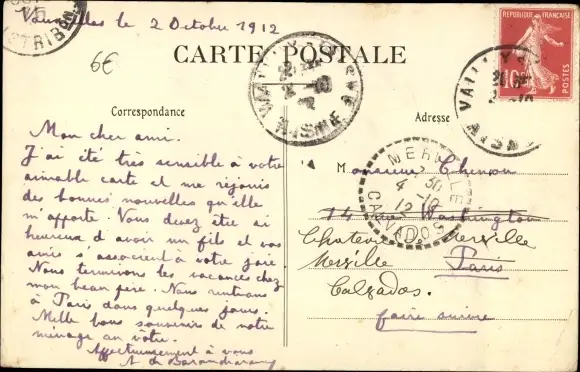 le 2 Octobre 1912
6€
CARTE POSTALE
REPUBLIQUE FRANÇAISE
10
POSTES
VAILLY
AISNE
VAILLY
AISNE
DISTRIBON
Correspondance
Adresse
Mon cher ami.
J'ai été très sensible à votre
aimable carte et me réjouis
des bonnes nouvelles qu'elle
m'apporte. Vous devez être si
heureux d'avoir un fils et vos
amis s'associent à votre joie
Nous terminons les vacances chez
mon beau père. Nous rentrons
à Paris dans quelques jours.
Mille bons souvenirs de notre
ménage au vôtre.
Affectueusement à vous
A. de
Monsieur
14 rue Washington
Paris
Chateau de Merville
Merville
Calvados.
faire suivre
MERVILLE
4 -10
12
CALVADOS